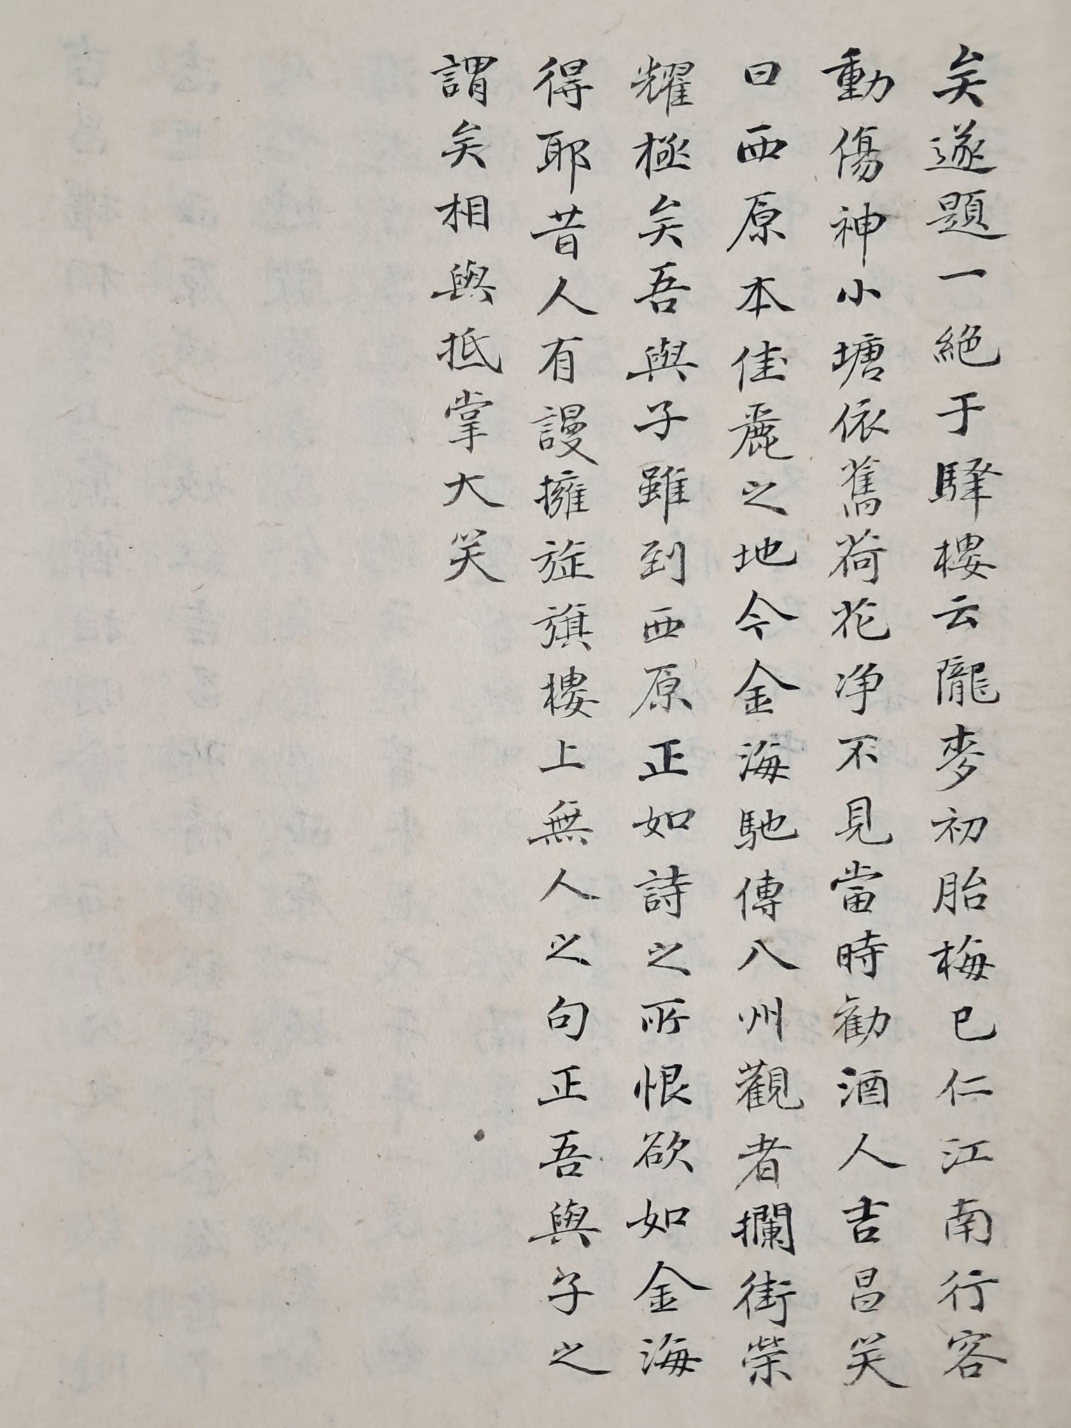 矣遂題一絶于驛樓云隴麥初胎梅已仁江南行客
動傷神小塘依舊荷花净不見當時勸酒人吉昌笑
曰西原本佳麗之地今金海馳傳八州觀者攔街榮
耀極矣吾與子雖到西原正如詩之所恨欲如金海
得耶昔人有謾擁旌旗樓上無人之句正吾與子之
謂矣相與抵掌大笑